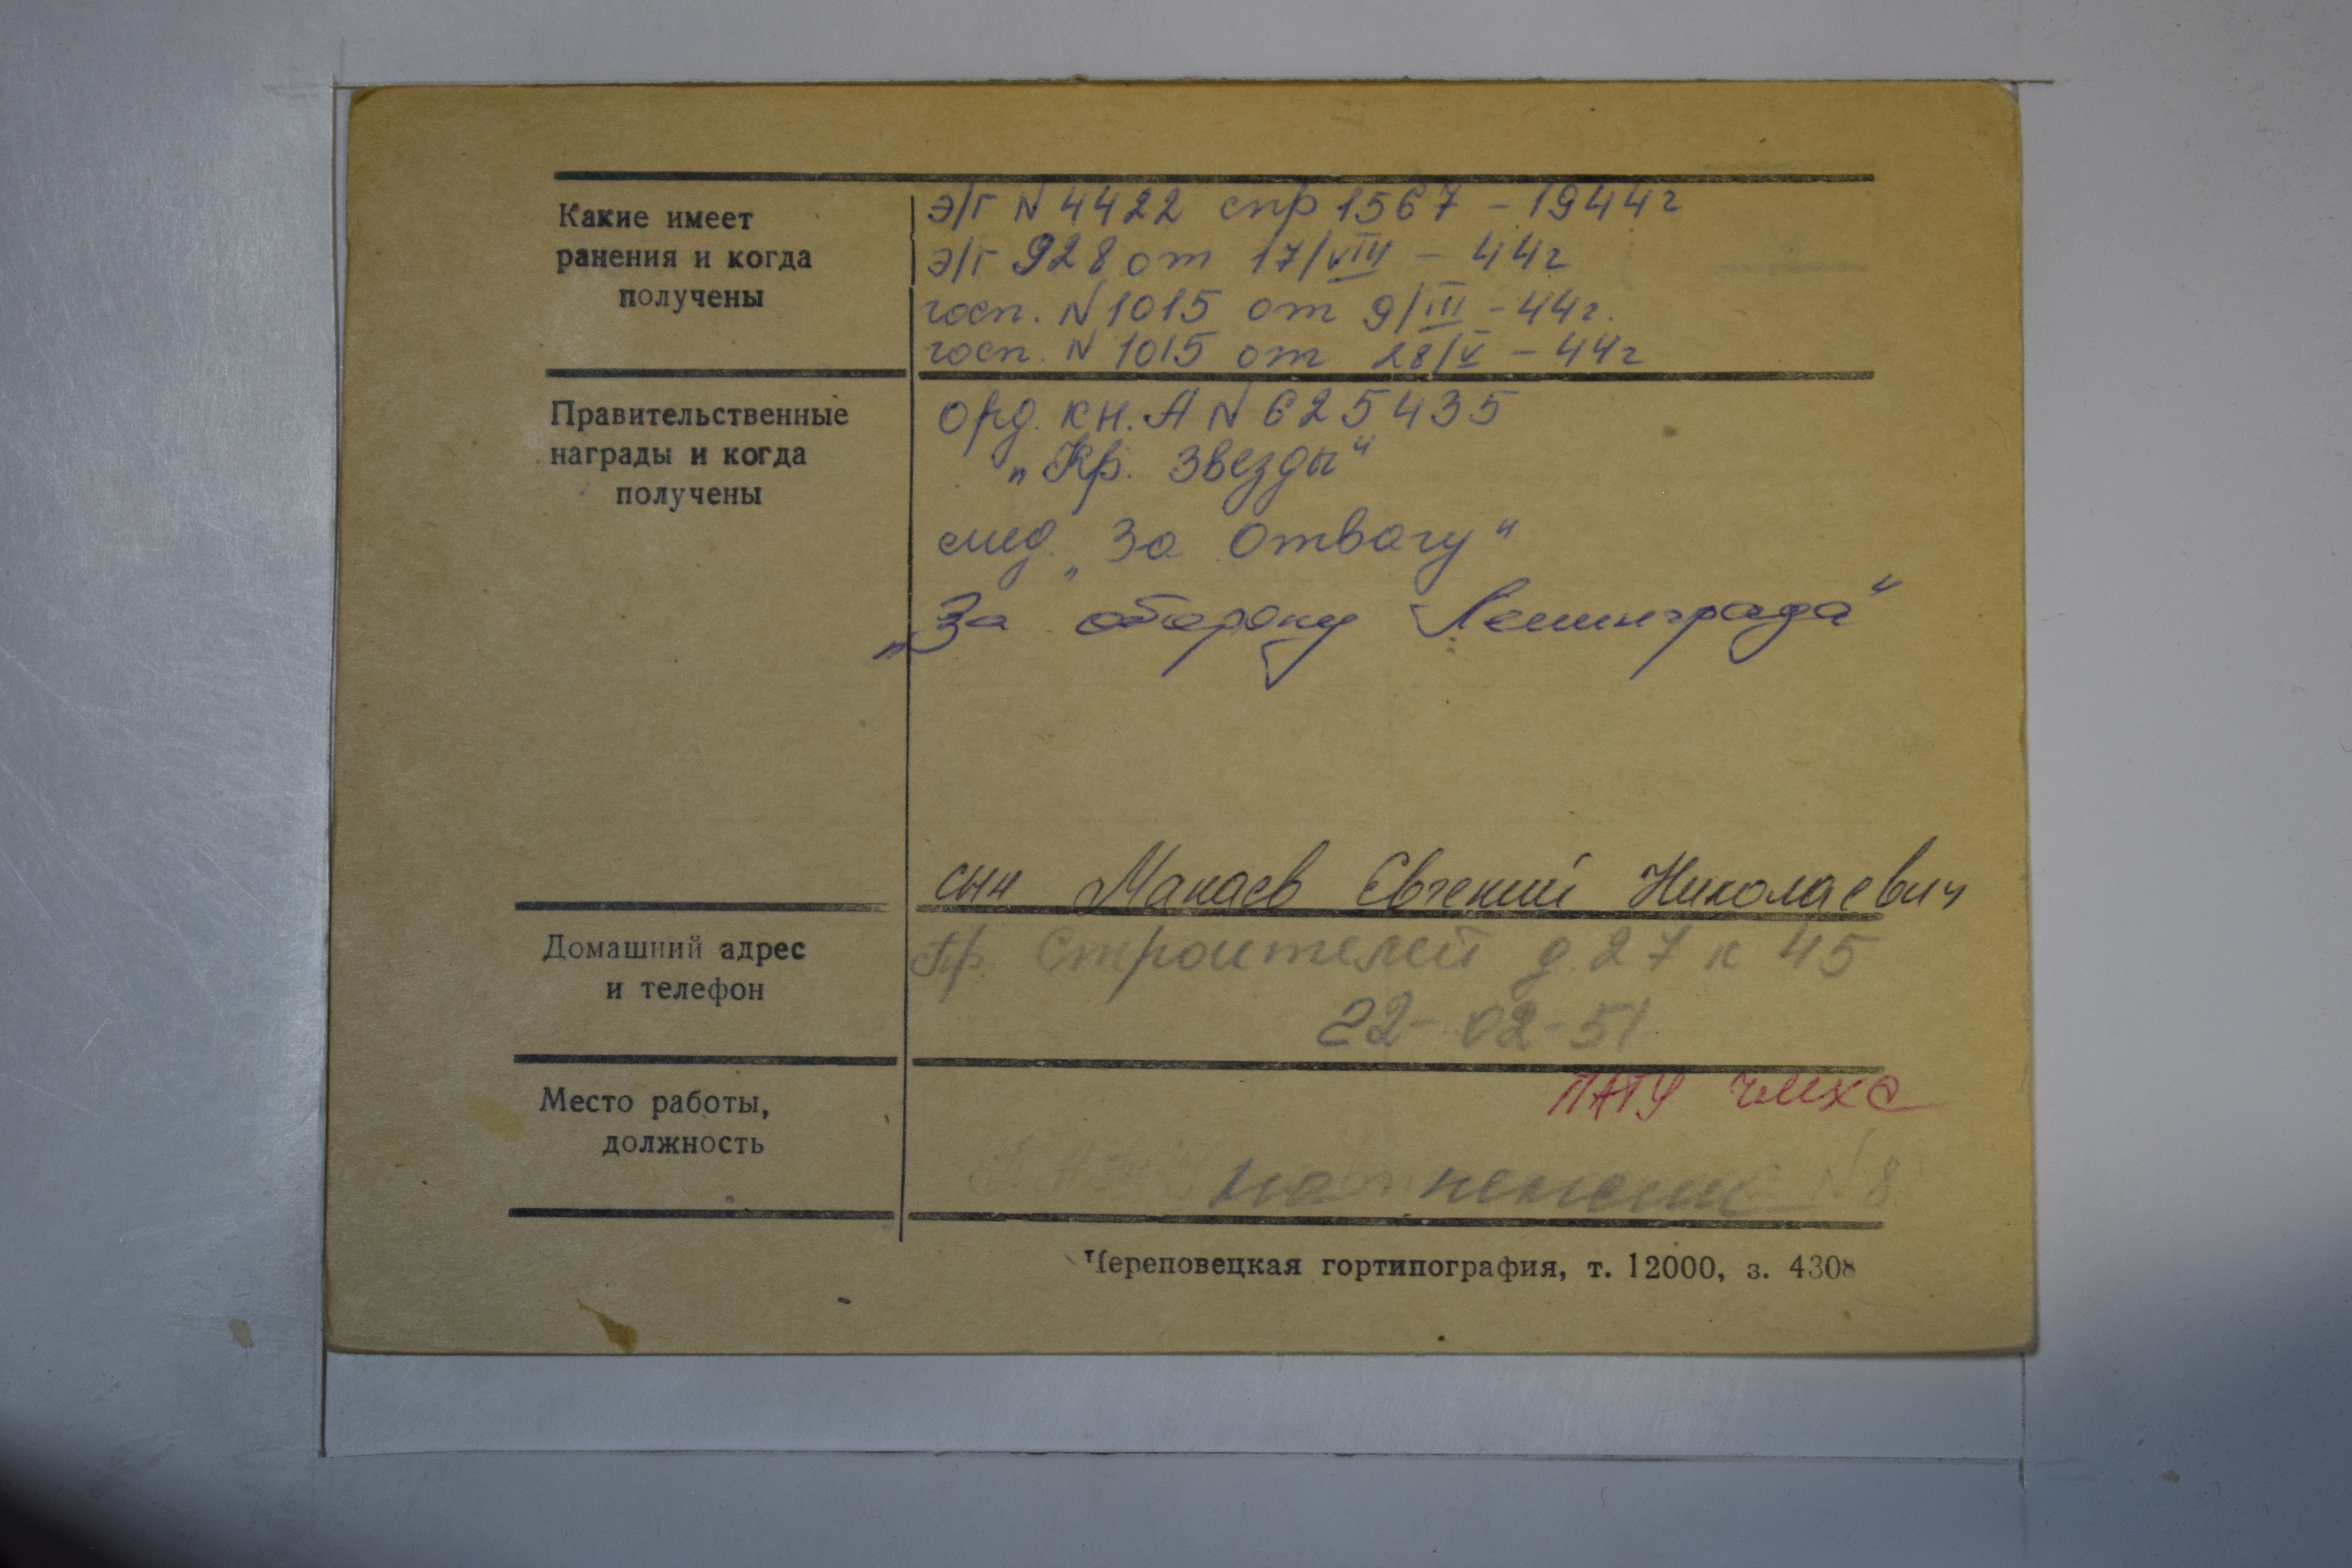 Какие имеет
ранения и когда
получены
э/г N 4422 спр 1567 - 1944г
э/г 928 от 17/VIII - 44г
госп. N 1015 от 9/III - 44г.
госп. N 1015 от 28/V - 44г
Правительственные
награды и когда
получены
орд. кн. А N 625435
„Кр. Звезды“
мед. „За Отвагу“
„За оборону Ленинграда“
сын Макаев Евгений Николаевич
Домашний адрес
и телефон
Пр. Строителей д. 27 к 45
22-02-51
Место работы,
должность
ПАТУ ЧМХС
на пенсии
N 8
Череповецкая гортипография, т. 12000, з. 4308